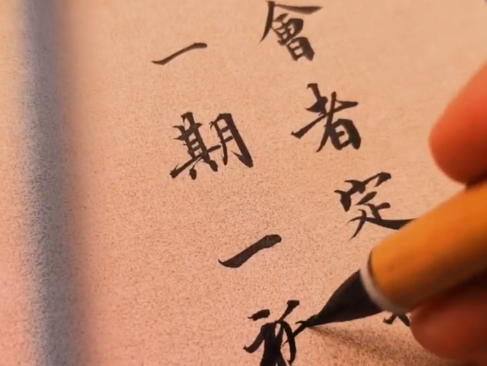 會者定
一期一